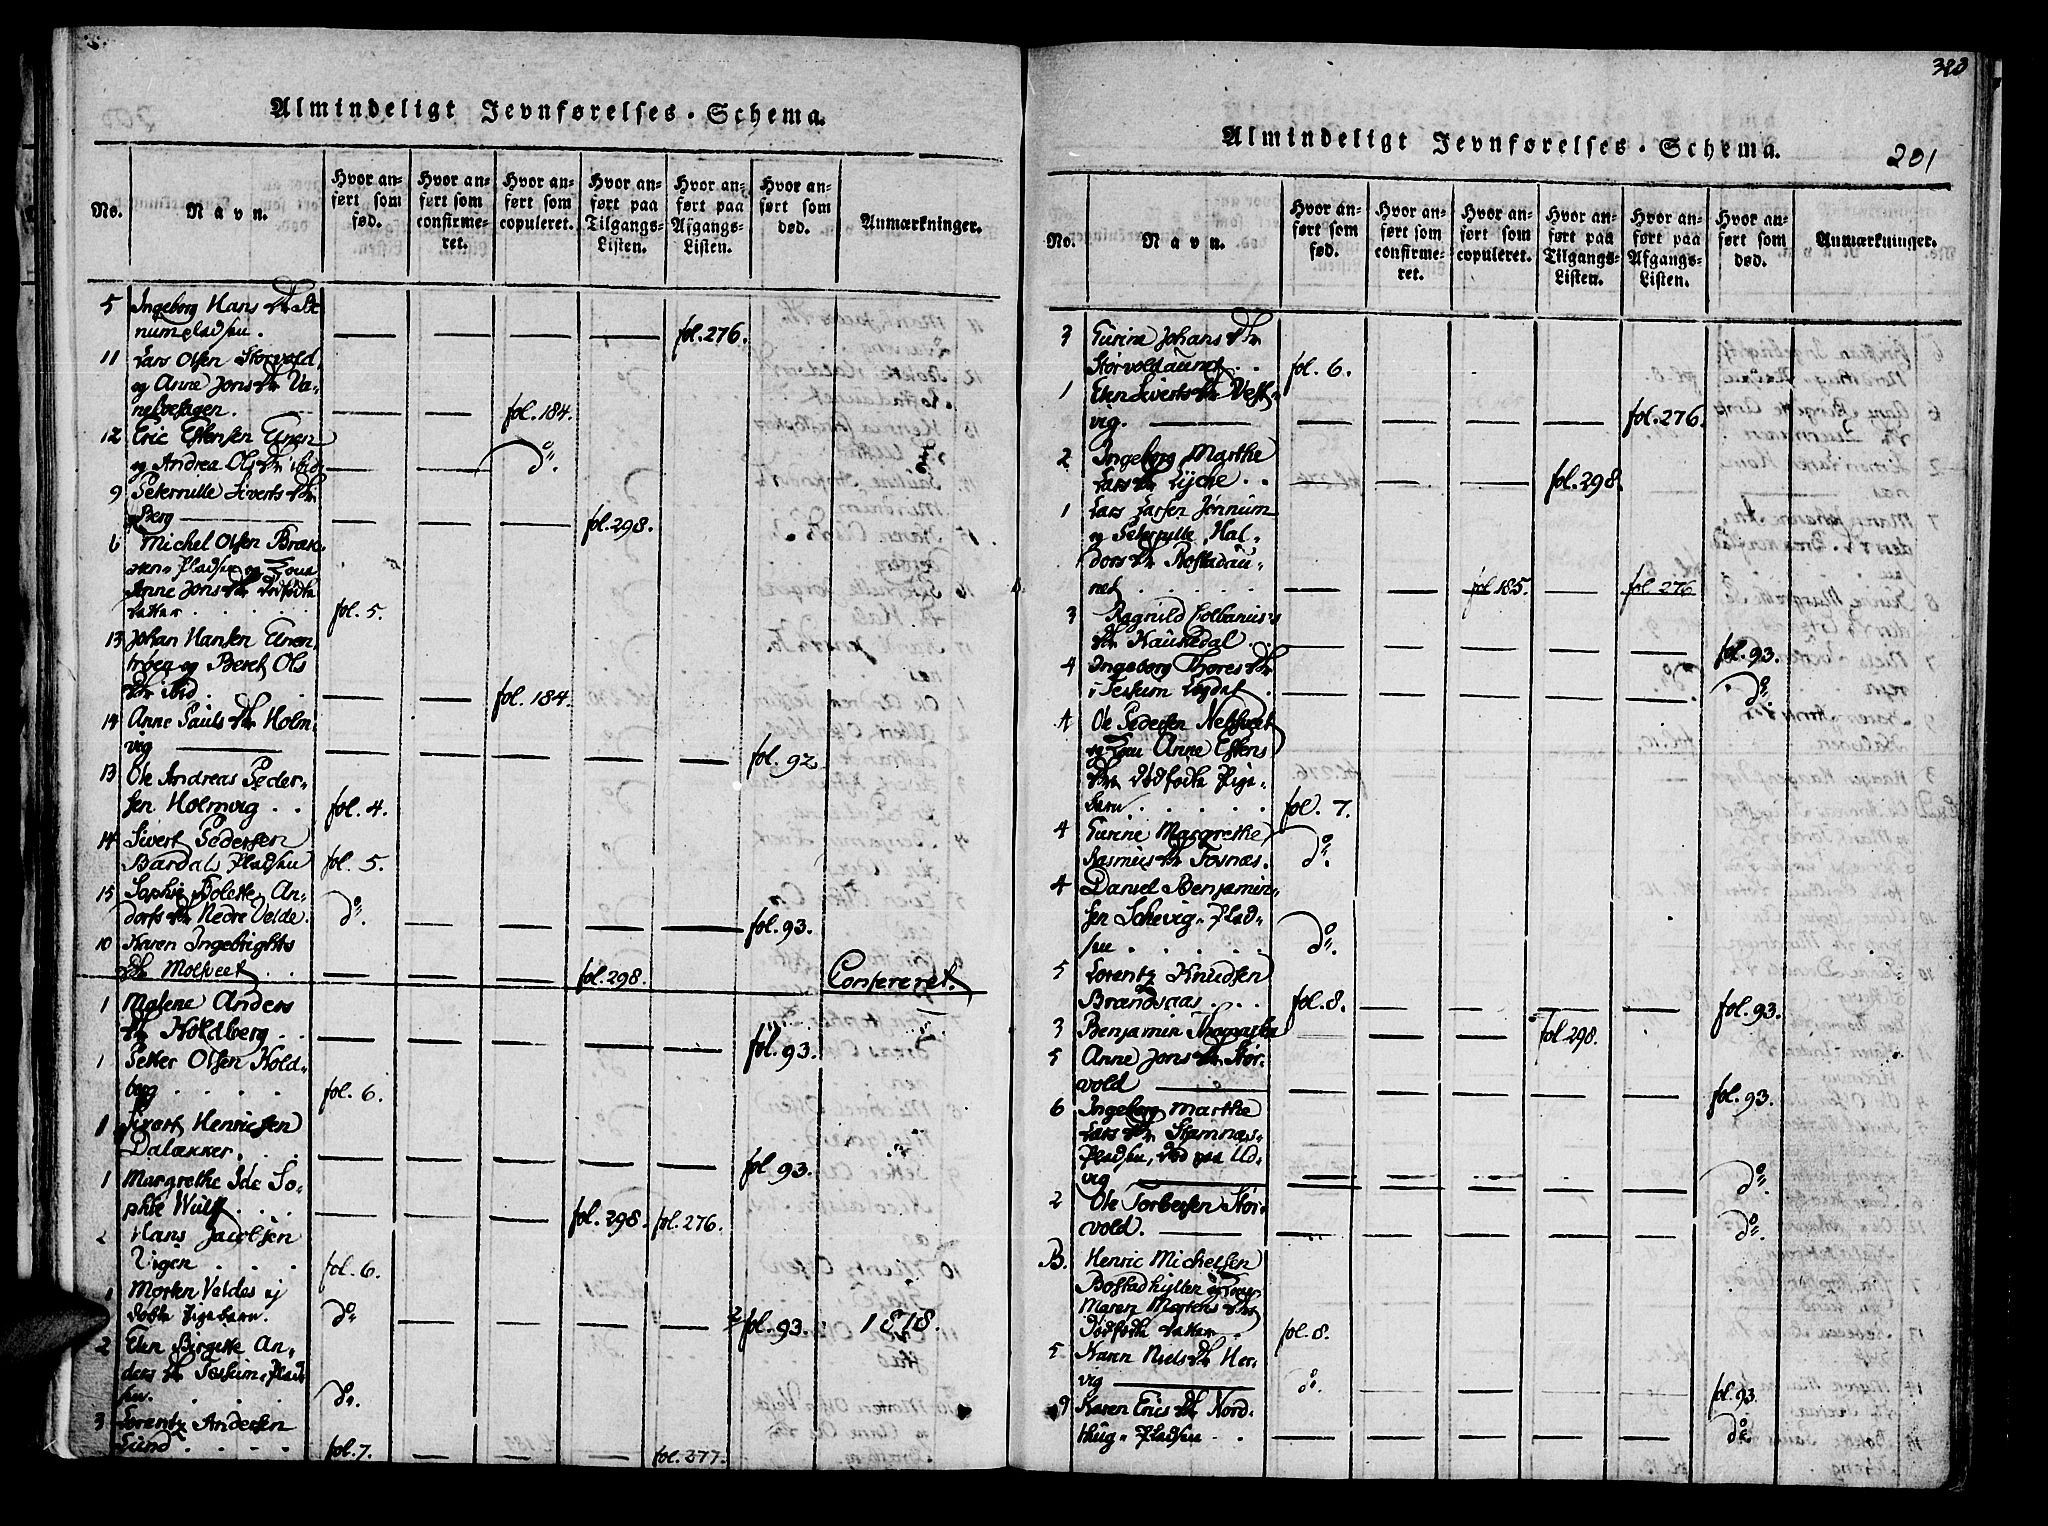 Almindeligt Jevnførelses-Schema.
No. Navn. Hvor anført som fød. Hvor anført som confirmeret. Hvor anført som copuleret. Hvor anført paa Tilgangs-Listen. Hvor anført paa Afgangs-Listen. Hvor anført som død. Anmærkninger.
5 Ingeborg Hans Dr
fol. 276.
11 Lars Olsen Storvold
og Anne Jons Dr
fol. 184.
12 Eric Estensen Elnen
og Andrea Ols Dr ibid
do.
9 Peternille Siverts Dr
Berg fol. 298.
6 Michel Olsen
Pladsen og
Anne Jons Dr dødfødte
fol. 5.
13 Johan Hansen Elnen
og Beret Ols
Dr ibid. fol. 184.
14 Anne Pauls Dr Holm-
vig fol. 92
13 Ole Andreas Peder-
sen Holmvig . . fol. 4.
14 Sivert Pedersen
Bardal Pladsen fol. 5.
15 Sophie Bolette An-
ders Dr Nedre Velde. do. fol. 93.
10 Karen Ingebrights
Dr Molsveet . . fol. 298. Confereret.
1 Malene Anders
Dr Koldberg . . fol. 93.
1 Petter Olsen Kold-
berg . . . . fol. 6.
1 Sivert Henricksen
Dalækker. fol. 93.
1 Margrethe Ide So-
phie Wulff . . . fol. 298. fol. 276.
2 Hans Jacobsen
Vigen . . . fol. 6.
Morten Veldes ej
døbte Pigebarn. do fol. 93. 1818.
2 Elen Birgitte An-
ders Dr Plad
sen. . . . . do.
3 Lorentz Andersen
Lund . . . . fol. 7. fol. 277.
383
Almindeligt Jevnførelses-Schema. 201
No. Navn. Hvor anført som fød. Hvor anført som confirmeret. Hvor anført som copuleret. Hvor anført paa Tilgangs-Listen. Hvor anført paa Afgangs-Listen. Hvor anført som død. Anmærkninger.
3 Gurine Johans Dr
Storvoldaunet . . fol. 6.
1 Elen Siverts Dr Vest-
vig. fol. 276.
2 Ingeborg Marthe
Lars Dr Lyche . . fol. 298.
1 Lars Larsen Jønnum
og Peternille Hal-
dors Dr Rostadau-
net . . . . . fol 185. fol 276
3 Ragnild
Dr fol. 93.
4 Ingeborg Thores Dr
do.
4 Ole Pedersen
og Anne Estens
Dr dødfødte Pige-
barn . . . . . fol. 7.
4 Gurine Margrethe
Rasmus Dr Fosnæs. do.
4 Daniel Benjamin-
sen Schevig-Plad-
sen . . . . . do.
5 Lorentz Knudsen
Brandsaas . . . fol. 8. fol. 93.
3 Benjamin fol 298.
5 Anne Jons Dr Stor-
vold fol. 93.
6 Ingeborg Marthe
Lars Dr Stamnæs-
Pladsen, død paa Ud-
vig do.
2 Ole Torbersen Stor-
vold. do.
B. Henric Michelsen
og
Maren Mortens Dr
dødfødte fol. 8.
5 Karen Niels Dr Her-
vig do. fol. 93.
9 Karen Erics Dr Nord-
Hug-Pladsen . . do